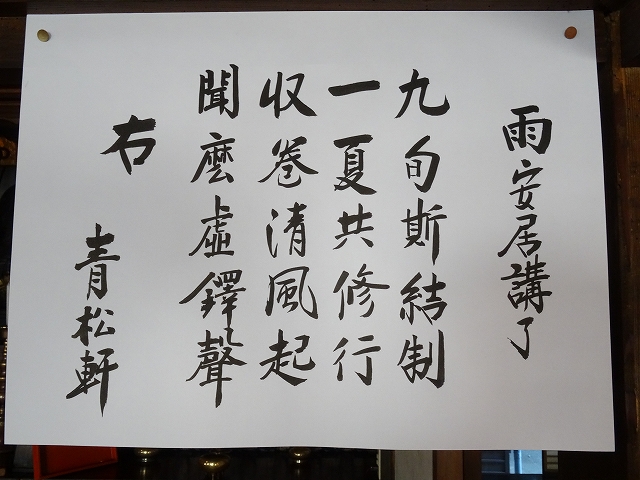 雨安居講了
九旬斯結制
一夏共修行
収巻清風起
聞麼虚鐸聲
右
青松軒